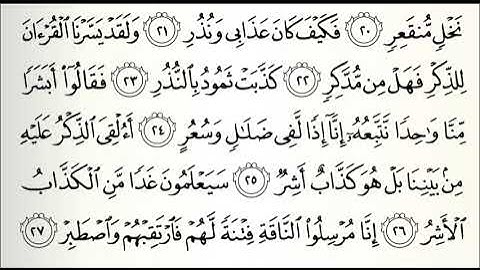 نَخْلٍ مُّنقَعِرٍ ٢٠ فَكَيْفَ كَانَ عَذَابِى وَنُذُرِ ٢١ وَلَقَدْ يَسَّرْنَا ٱلْقُرْءَانَ
لِلذِّكْرِ فَهَلْ مِن مُّدَّكِرٍ ٢٢ كَذَّبَتْ ثَمُودُ بِٱلنُّذُرِ ٢٣ فَقَالُوٓا۟ أَبَشَرًا
مِّنَّا وَٰحِدًا نَّتَّبِعُهُۥٓ إِنَّآ إِذًا لَّفِى ضَلَٰلٍ وَسُعُرٍ ٢٤ أَءُلْقِىَ ٱلذِّكْرُ عَلَيْهِ
مِنۢ بَيْنِنَا بَلْ هُوَ كَذَّابٌ أَشِرٌ ٢٥ سَيَعْلَمُونَ غَدًا مَّنِ ٱلْكَذَّابُ
ٱلْأَشِرُ ٢٦ إِنَّا مُرْسِلُوا۟ ٱلنَّاقَةِ فِتْنَةً لَّهُمْ فَٱرْتَقِبْهُمْ وَٱصْطَبِرْ ٢٧